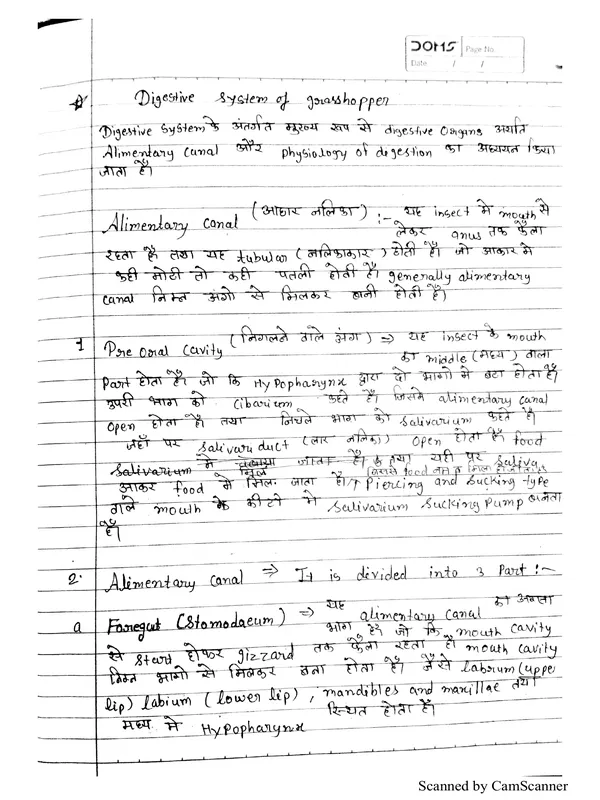 DOMS Page No.
Date / /
Digestive System of grasshopper
Digestive System के अंतर्गत मुख्य रूप से digestive Organs अर्थात
Alimentary canal और Physiology of degestion का अध्ययन किया
जाता है।
Alimentary Canal (आहार नलिका) :- यह insect में mouth से
लेकर anus तक फैला
रहता है तथा यह tubular (नलिकाकार) होती है। जो आकार मे
कही मोटी तो कही पतली होती है। generally alimentary
canal निम्न अंगो से मिलकर बनी होती है।
1 Pre Oral Cavity (निगलने वाले अंग) => यह insect के mouth
का middle (मध्य) वाला
Part होता है। जो कि Hypopharynx द्वारा दो भागो मे बटा होता है।
उपरी भाग को Cibarium कहते है। जिसमे alimentary canal
Open होता है। तथा निचले भाग को Salivarium कहते है।
जहाँ पर Salivary duct (लार नलिका) Open होता है। food
Salivarium मे जाता है। तथा यही पर Saliva
आकर food मे मिल जाता है। Piercing and Sucking type
वाले mouth के कीटो मे Salivarium Sucking Pump बनाता
है।
2. Alimentary Canal => It is divided into 3 Part :-
a Foregut (Stomodaeum) => यह alimentary canal का अगला
भाग है। जो कि mouth cavity
से Start होकर gizzard तक फैला रहता है। mouth cavity
निम्न भागो से मिलकर बना होता है। जैसे labrum (upper
lip) labium (lower lip), mandibles and maxillae तथा
मध्य मे Hypopharynx स्थित होता है।
Scanned by CamScanner